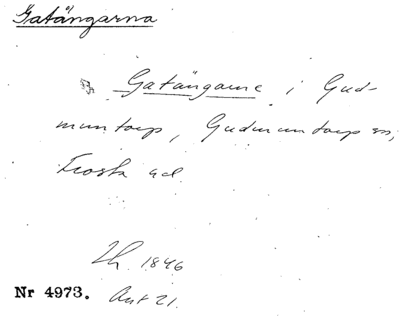 Gatängarna
Gatängarne i Gud-
muntorp, Gudmuntorp sn,
Frosta hd
Lh. 1846
Nr 4973. Akt 21.